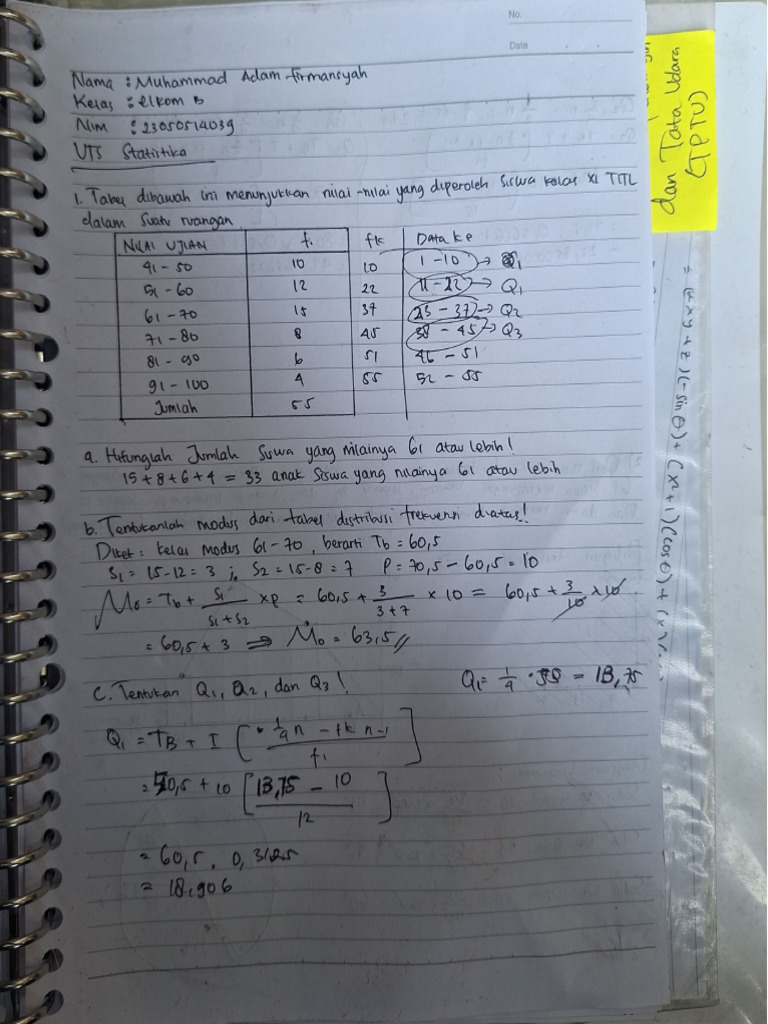 No.
Date
Nama : Muhammad Adam Firmansyah
Kelas : elkom B
Nim : 23050514039
UTS Statistika
1. Tabel dibawah ini menunjukkan nilai-nilai yang diperoleh Siswa kelas XI TITL
dalam Suatu ruangan
NILAI UJIAN fi fk Data ke
41 - 50 10 10 1 - 10 →
51 - 60 12 22 11 - 22 → Q1
61 - 70 15 37 23 - 37 → Q2
71 - 80 8 45 38 - 45 → Q3
81 - 90 6 51 46 - 51
91 - 100 4 55 52 - 55
Jumlah 55
a. Hitunglah Jumlah Siswa yang nilainya 61 atau lebih!
15 + 8 + 6 + 4 = 33 anak Siswa yang nilainya 61 atau lebih
b. Tentukanlah modus dari tabel distribusi frekuensi diatas!
Diket : kelas modus 61 - 70, berarti Tb = 60,5
S1 = 15 - 12 = 3 ; S2 = 15 - 8 = 7 P = 70,5 - 60,5 = 10
Mo = Tb + S1 / S1 + S2 × P = 60,5 + 3 / 3 + 7 × 10 = 60,5 + 3 / 10 × 10
= 60,5 + 3 ⇒ Mo = 63,5 //
C. Tentukan Q1, Q2, dan Q3! Q1 = 1/4 · 55 = 13,75
Q1 = TB + I [ 1/4 n - fk n-1 / fi ]
= 50,5 + 10 [ 13,75 - 10 / 12 ]
= 60,5 . 0,3125
= 18,906
dan Tata Udara
(TPTU)